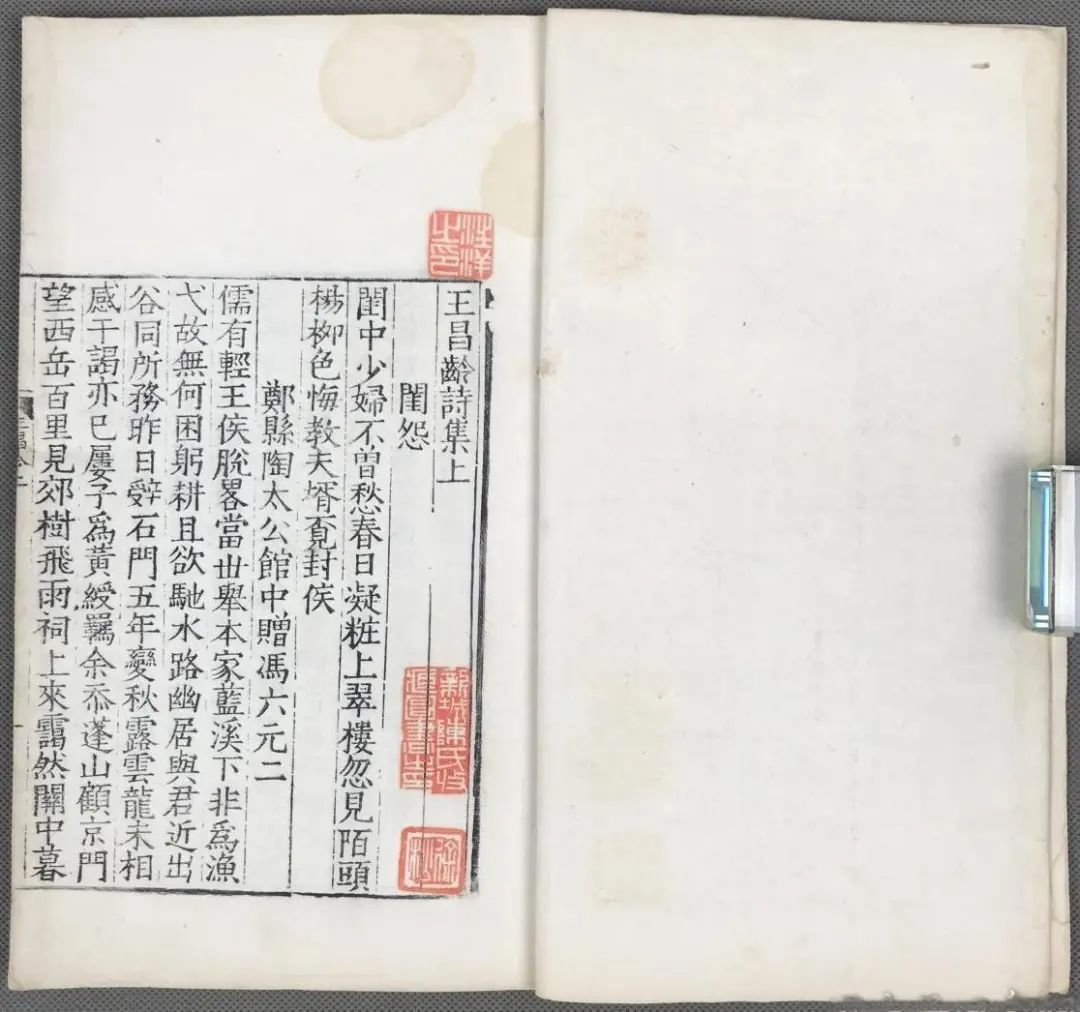 王昌齡詩集上
閨怨
閨中少婦不曾愁春日凝粧上翠樓忽見陌頭
楊柳色悔教夫壻覔封侯
鄭縣陶太公館中贈馮六元二
儒有輕王侯脫畧當世舉本家藍溪下非爲漁
弋故無何困躬耕且欲馳水路幽居與君近出
谷同所務昨日辭石門五年變秋露雲龍未相
感干謁亦已屢子爲黃綬羈余忝蓬山顧京門
望西岳百里見郊樹飛雨祠上來靄然關中暮
汪洋
之印
新城陳氏收